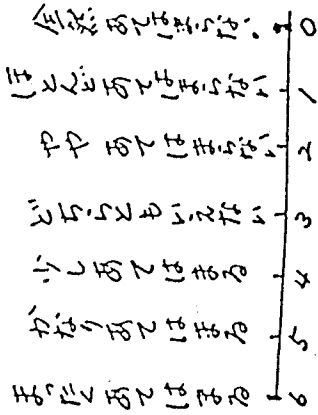 全然あてはまらない 0
ほとんどあてはまらない 1
ややあてはまらない 2
どちらともいえない 3
少しあてはまる 4
かなりあてはまる 5
まったくあてはまる 6